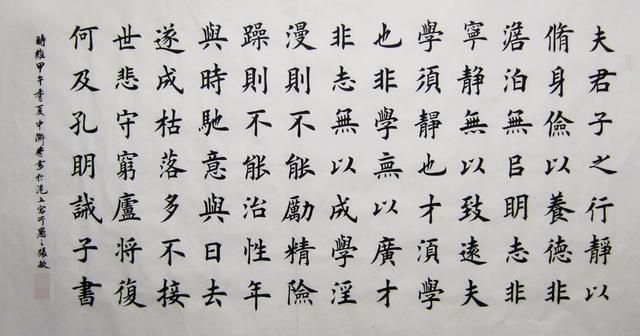 夫君子之行靜以
脩身儉以養德非
澹泊無㠯明志非
寧静無以致遠夫
學須靜也才須學
也非學無以廣才
非志無以成學淫
漫則不能勵精險
躁則不能治性年
與時馳意與日去
遂成枯落多不接
世悲守窮廬將復
何及孔明誡子書
時維甲午季夏中澣書於滬上寓所張敏